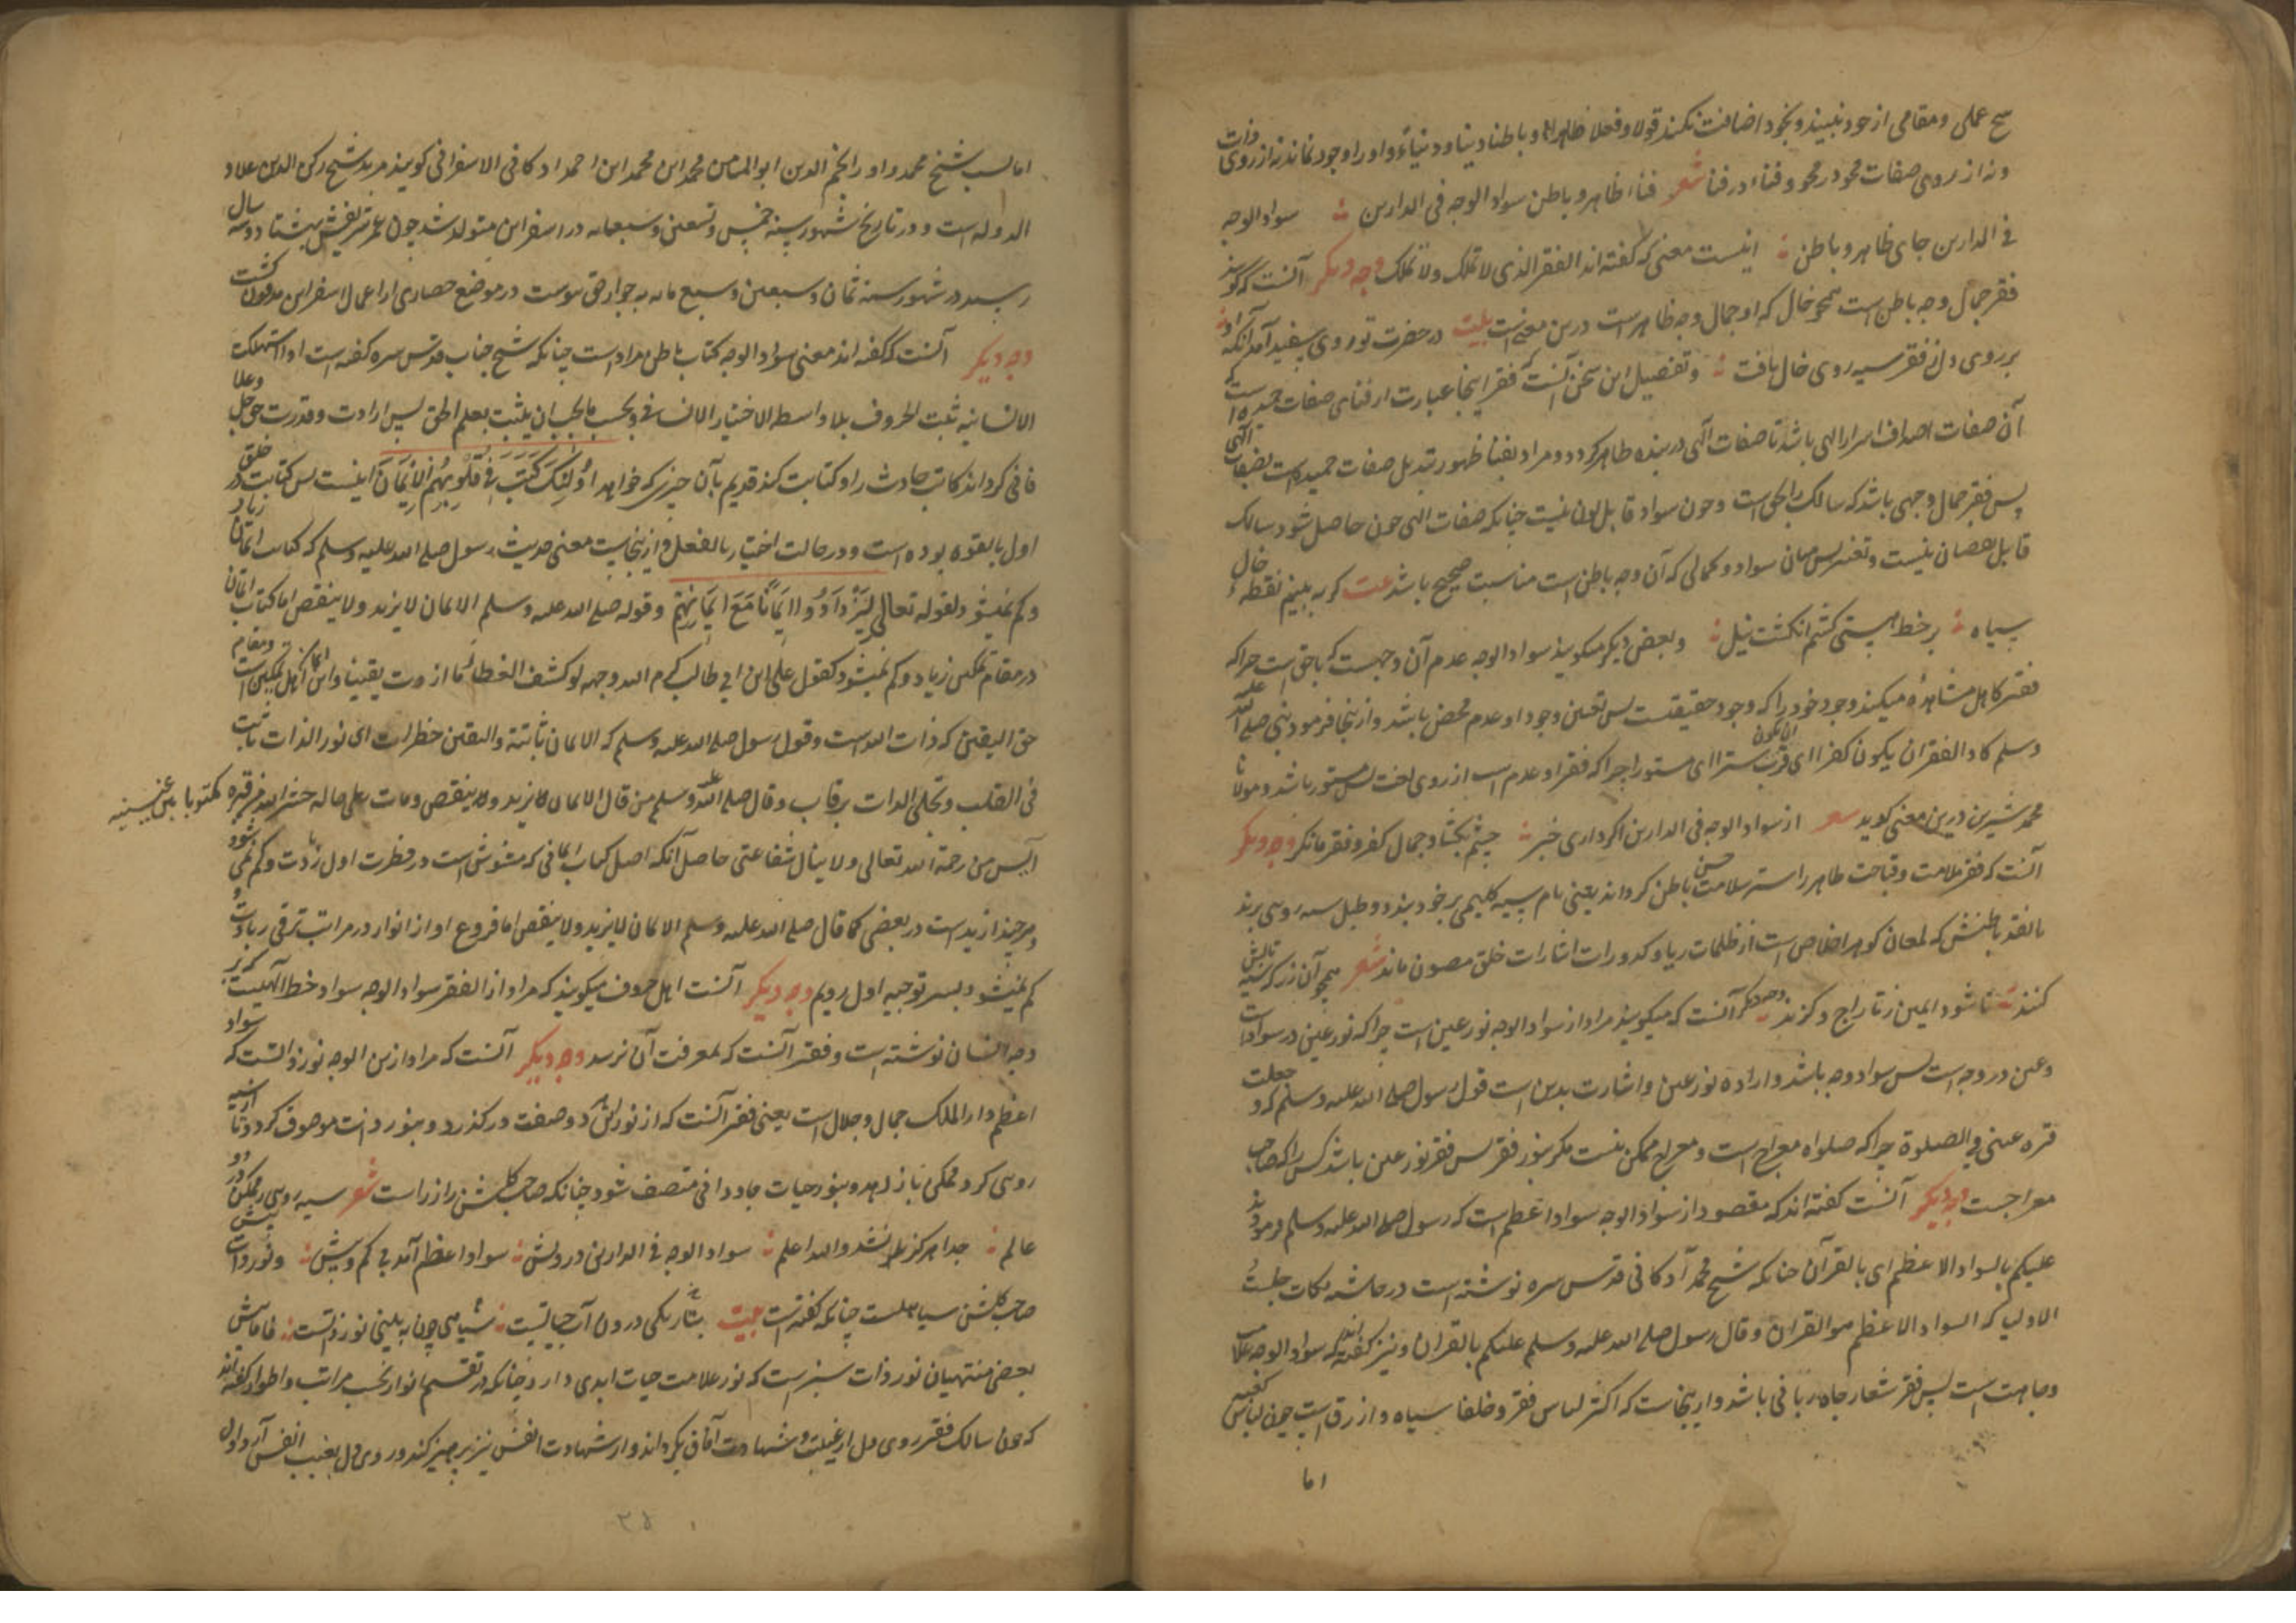 هیچ عملی و مقامی از خود نبیند و بخود اضافت نکند قولا و فعلا ظاهرا و باطنا دینا و دنیاء و او را وجود نماند نه از روی ذات
و نه از روی صفات محو در محو و فنا در فنا شعر فنا ظاهر و باطن سواد الوجه فی الدارین سواد الوجه
فی الدارین جای ظاهر و باطن اینست معنی که گفته اند الفقر الذی لا تملک ولا تملک وجه دیگر آنست که گویند
فقر جمال وجه باطن است همچو خال که او جمال وجه ظاهر است درین معنی است بیت در حضرت تو روی سفید آمد آنکه او
بر روی دل ز فقر سیه روی خال یافت و تفصیل این سخن آنست که فقر اینجا عبارت از فنای صفات حمیده است که
آن صفات اصداف اسرار الهی باشد تا صفات الهی در بنده ظاهر گردد و مراد بفنا ظهور تبدیل صفات حمیده است بصفات الهی
پس فقر جمال وجهی باشد که سالک را بحق است و چون سواد قابل لون نیست چنانکه صفات الهی چون حاصل شود سالک
قابل نقصان نیست و تغیر پس میان سواد و کمالی که آن وجه باطن است مناسبت صحیح باشد بیت گر به بینم نقطه خال
سیاه بر خط هستی کشم انگشت نیل و بعض دیگر میگویند سواد الوجه عدم آن وجهست که باحق است چرا که
فقر کامل مشاهده میکند وجود خود را که وجود حقیقتست پس تعین وجود او عدم محض باشد و ازینجا فرمود نبی صلی الله علیه
وسلم کاد الفقر ان یکون کفرا ای قرب ان یکون سترا ای مستورا چرا که فقر او عدم است از روی لغت پس مستور باشد و مولانا
محمد شیرین درین معنی گوید شعر از سواد الوجه فی الدارین اگر داری خبر چشم بگشا و جمال کفر و فقر ما نگر وجه دیگر
آنست که فقر ملامت و قباحت ظاهر را ستر سلامت حسن باطن گرداند یعنی نام سیه گلیمی بر خود نهد و طبل سیه روی برند
تا نقد باطنش که لمعان گوهر اخلاص است از ظلمات ریا و کدورات اشارات خلق مصون ماند شعر همچو آن زر که سیه تابش
کنند تا شود ایمن ز تاراج و گزند وجه دیگر آنست که میگویند مراد از سواد الوجه نور عین است چرا که نور عین در سواد است
و عین در وجه است پس سواد وجه باشد و اراده نور عین و اشارت بدین است قول رسول صلی الله علیه وسلم که و جعلت
قره عینی فی الصلوة چرا که صلواة معراج است و معراج ممکن نیست مگر بنور فقر پس فقر نور عین باشد کسی را که صاحب
معراجست وجه دیگر آنست گفته اند که مقصود از سواد الوجه سواد اعظم است که رسول صلی الله علیه وسلم فرمودند
علیکم بالسواد الاعظم ای بالقرآن چنانکه شیخ محمد آدکانی قدس سره نوشته است در حاشیه نکات جلسة
الاولیا که السواد الاعظم هو القران و قال رسول صلی الله علیه وسلم علیکم بالقران و نیز گفته اند که سواد الوجه علامت
وجاهت است پس فقر شعار جاه ربانی باشد و ازینجاست که اکثر لباس فقر و خلفا سیاه و ازرق است چون لباس کعبه
اما
اما لسب شیخ محمد و او را نجم الدین ابو المیامن محمد ابن محمد ابن احمد ادکانی الاسفرائنی گویند مرید شیخ رکن الدین علاء
الدوله است و در تاریخ شهور سنه خمس و تسعین و سبعمایه در اسفراین متولد شد چون عمر شریفش بهشتاد و سه سال
رسید در شهور سنه ثمان و سبعین و سبع مایه به جوار حق پیوست در موضع حصاری از اعمال اسفراین مدفون گشت
وجه دیگر آنست که گفته اند معنی سواد الوجه کتاب باطن مراد است چنانکه شیخ جناب قدس سره گفته است اذا استهلکت
الانسانیه ثبت الحروف بلا واسطه الاختیار الانسانی و بحسب مایحب ان یثبت بعلم الحق پس ارادت و قدرت حق جل وعلا
فانی گرداند کاتب حادث را و کتابت کند قدیم بآن چیزی که خواهد اُولٰئِکَ کَتَبَ فِی قُلُوبِهِمُ الْاِیمَانَ اینست پس کتابت در خلق
اول بالقوه بوده است و در حالت اختیار بالفعل و ازینجاست معنی حدیث رسول صلی الله علیه وسلم که کتابت ایمان زیاد
و کم نمیشود لقوله تعالی لِیَزْدَادُوا اِیمَانًا مَعَ اِیمَانِهِمْ و قوله صلی الله علیه وسلم الایمان لا یزید ولا ینقص اما کتابت ایمان
در مقام تمکین زیاد و کم نمیشود کقول علی ابن ابی طالب کرم الله وجهه لو کشف الغطاء ما ازددت یقینا و این ایمان اهل تمکین است و مقام
حق الیقین که ذات الله است و قول رسول صلی الله علیه وسلم که الایمان ثابتة والیقین خطرات ای نور الذات ثابت
فی القلب و تجلی الذات برقاب و قال صلی الله علیه وسلم من قال الایمان یزید ولا ینقص و مات علی حاله حشر الله من قبره مکتوبا بین عینیه
آیس من رحمة الله تعالی ولا ینال شفاعتی حاصل آنکه اصل کتاب ایمانی که منقوش است در فطرت اول زیادت و کم نمی شود
هر چند ازید است در بعضی کما قال صلی الله علیه وسلم الایمان لایزید ولا ینقص اما فروع او از انوار در مراتب ترقی زیادت و
کم نمیشود بسر توجیه اول رویم وجه دیگر آنست اهل حروف میگویند که مراد از الفقر سواد الوجه سواد خط الهیست که بر
وجه انسان نوشته است و فقر آنست که بمعرفت آن نرسد وجه دیگر آنست که مراد ازین الوجه نور ذاتست که سواد
اعظم دار الملک جمال و جلال است یعنی فقر آنست که از نور این دو صفت در گذرد و بنور ذات موصوف گردد تا از سیه
روی گرد ممکنی باز رهد و بنور حیات جاودانی متصف شود چنانکه صاحب گلشن راز راست شعر سیه روی ز ممکن در دو
عالم جدا هرگز نشد والله اعلم سواد الوجه فی الدارین درویش سواد اعظم آمد بی کم و بیش و نور ذات پیش
صاحب گلشن سیاهست چنانکه گفته است بیت بتاریکی درون آب حیاتست سیاهی چون به بینی نور ذاتست فاما پیش
بعضی منتهیان نور ذات سبز است که نور علامت حیات ابدی دارد چنانکه در تقسیم انوار بحسب مراتب و اطوار گفته اند
که چون سالک فقر روی دل از غیبت و شهادت آفاق بگرداند و از شهادت انفس نیز پرهیز کند و روی دل بغیب انفس آرد اول